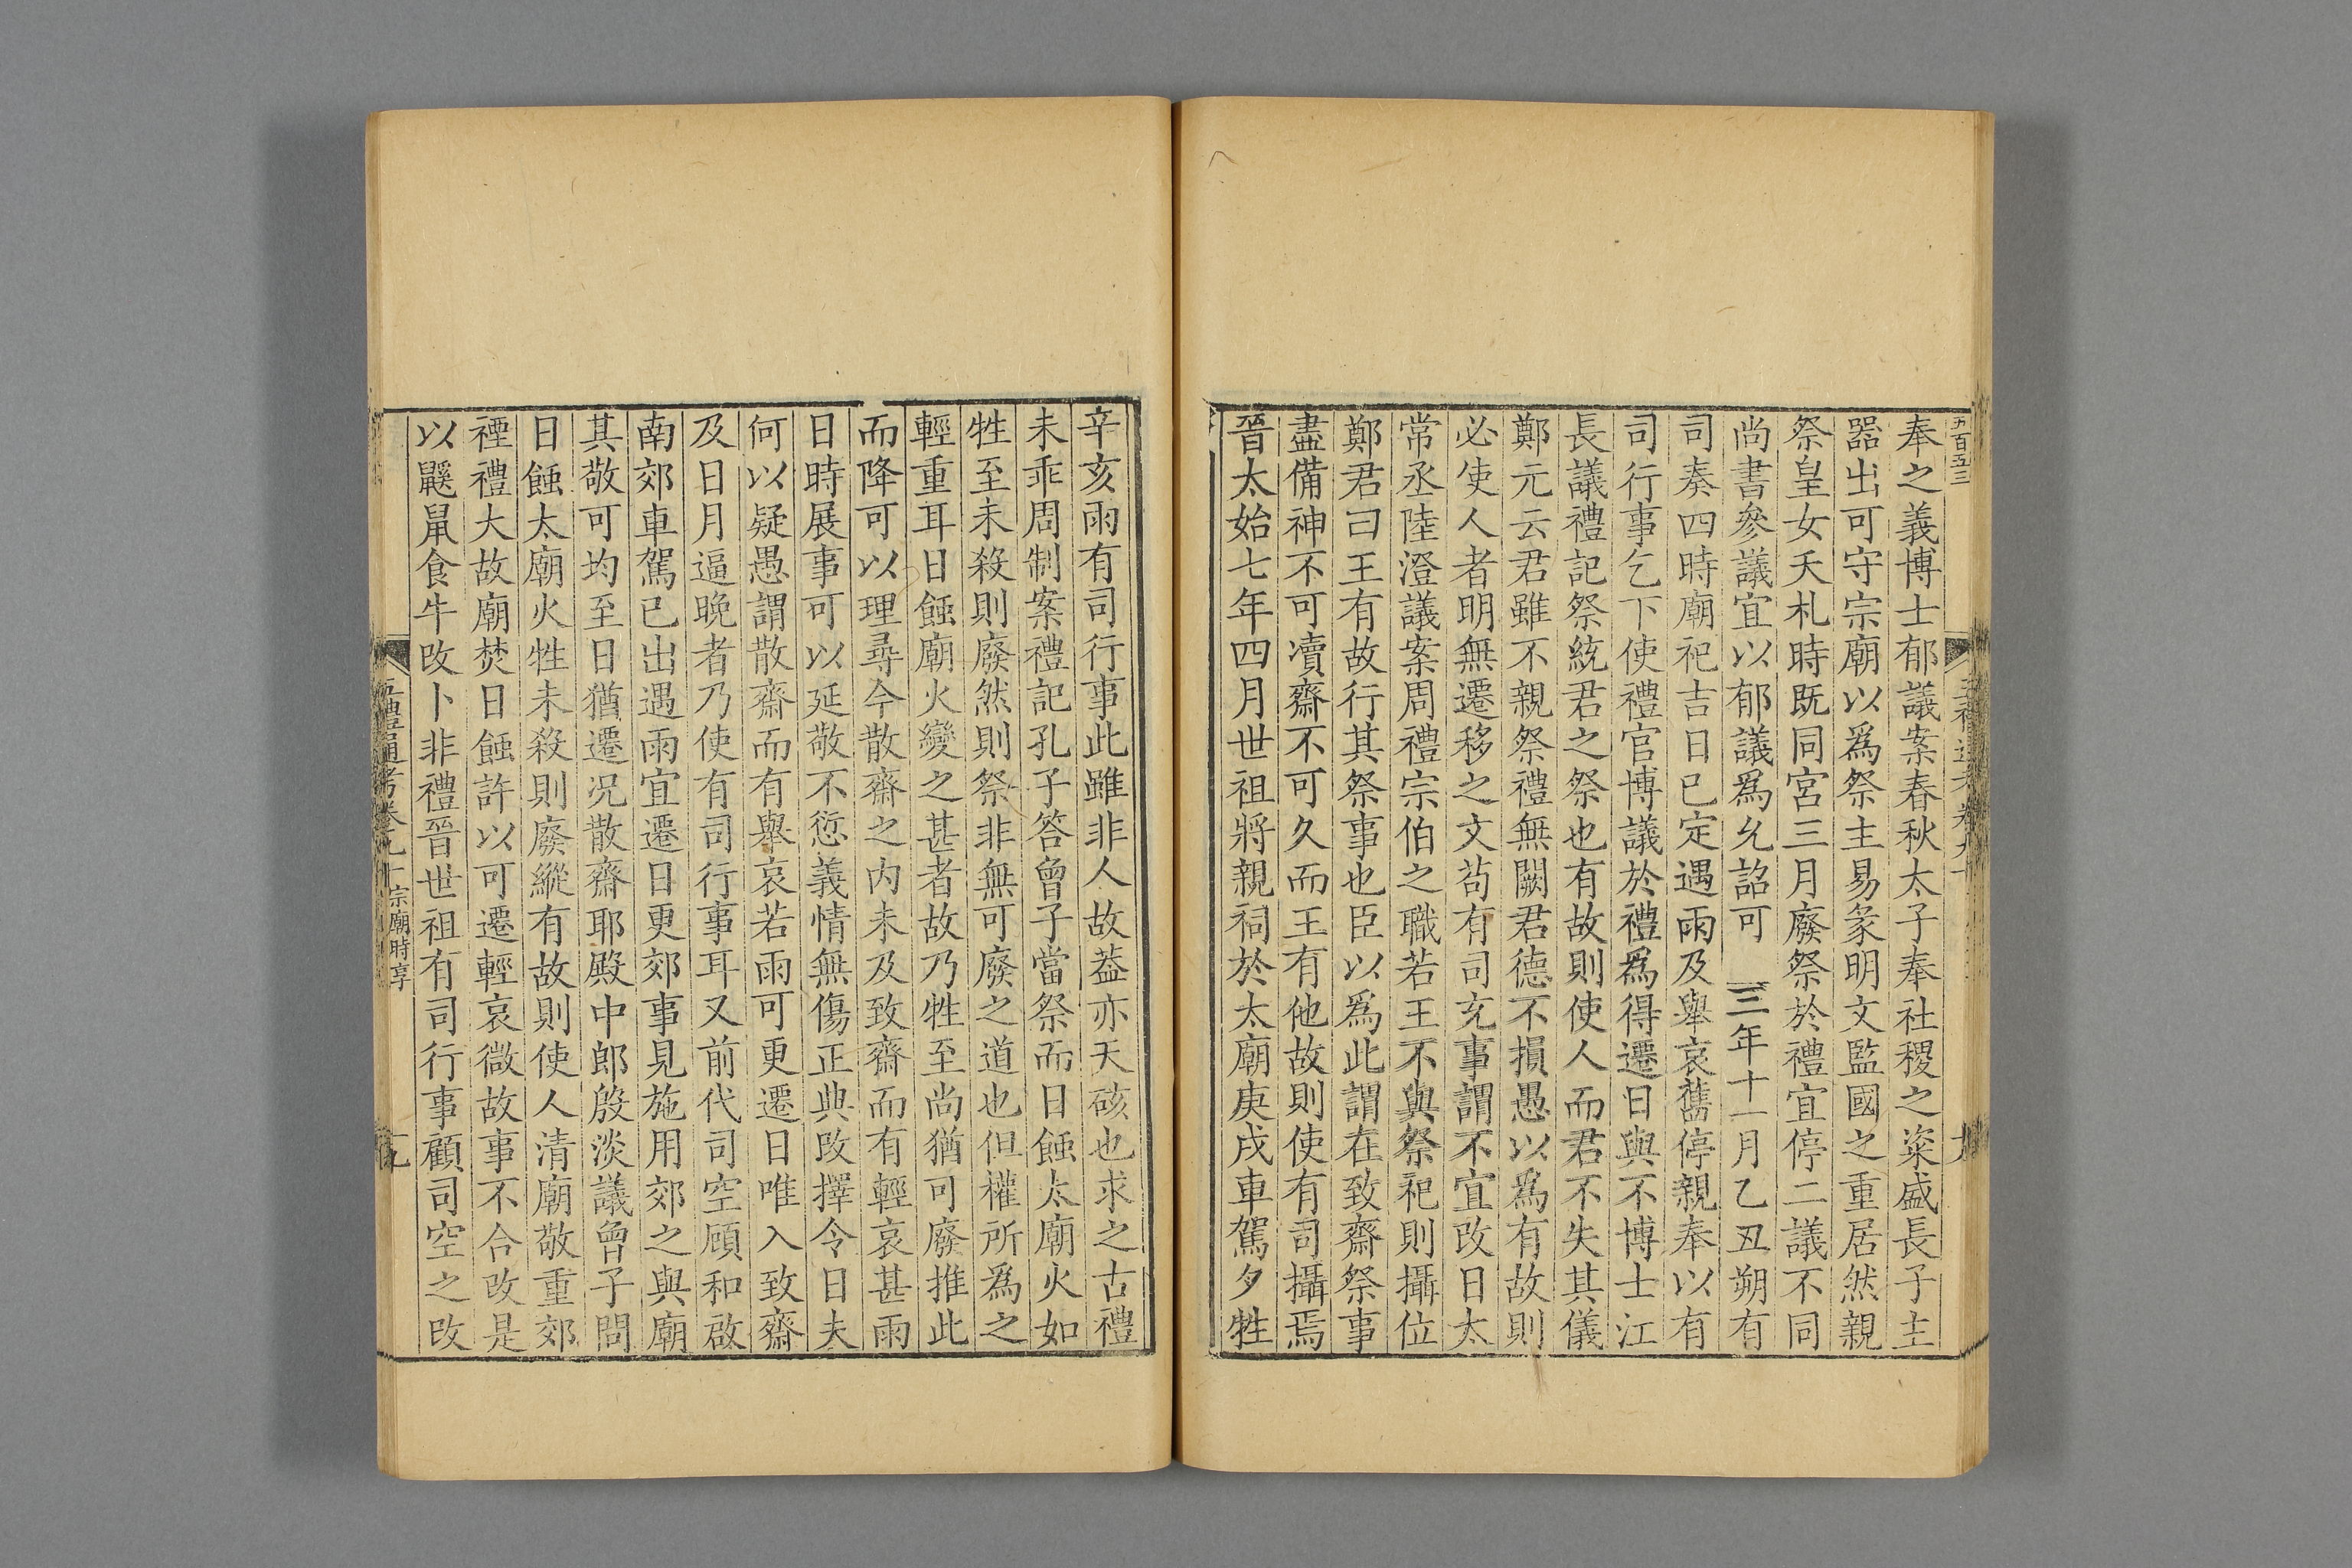 五百五三
奉之義博士郁議案春秋太子奉社稷之粢盛長子主
器出可守宗廟以爲祭主易彖明文監國之重居然親
祭皇女夭札時既同宮三月廢祭於禮宜停二議不同
尚書參議宜以郁議爲允詔可 三年十一月乙丑朔有
司奏四時廟祀吉日已定遇雨及舉哀舊停親奉以有
司行事乞下使禮官博議於禮爲得遷日與不博士江
長議禮記祭統君之祭也有故則使人而君不失其儀
鄭元云君雖不親祭禮無闕君德不損愚以爲有故則
必使人者明無遷移之文苟有司充事謂不宜改日太
常丞陸澄議案周禮宗伯之職若王不與祭祀則攝位
鄭君曰王有故行其祭事也臣以爲此謂在致齋祭事
盡備神不可瀆齋不可久而王有他故則使有司攝焉
晉太始七年四月世祖將親祠於太廟庚戌車駕夕牲
辛亥雨有司行事此雖非人故葢亦天硋也求之古禮
未乖周制案禮記孔子答曾子當祭而日蝕太廟火如
牲至未殺則廢然則祭非無可廢之道也但權所爲之
輕重耳日蝕廟火變之甚者故乃牲至尚猶可廢推此
而降可以理尋今散齋之内未及致齋而有輕哀甚雨
日時展事可以延敬不愆義情無傷正典改擇令日夫
何以疑愚謂散齋而有舉哀若雨可更遷日唯入致齋
及日月逼晚者乃使有司行事耳又前代司空顧和啟
南郊車駕已出遇雨宜遷日更郊事見施用郊之與廟
其敬可均至日猶遷况散齋耶殿中郎殷淡議曾子問
日蝕太廟火牲未殺則廢縱有故則使人清廟敬重郊
禋禮大故廟焚日蝕許以可遷輕哀微故事不合改是
以鼷鼠食牛改卜非禮晉世祖有司行事顧司空之改
五禮通考卷九十 宗廟時享